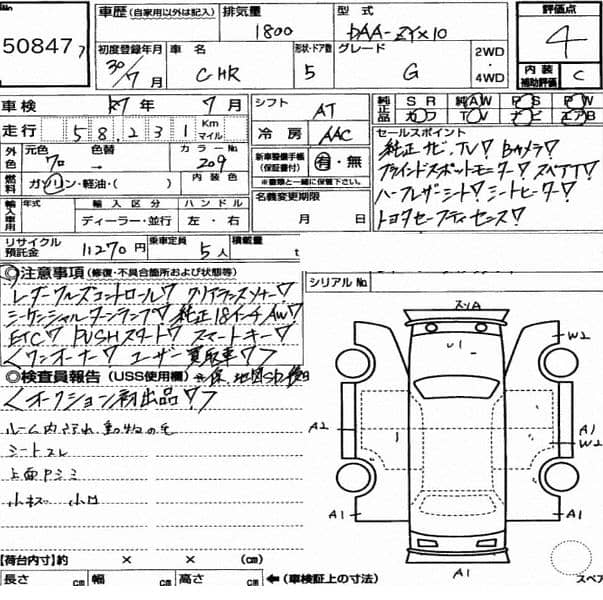 No.
50847
車歴 (自家用以外は記入)
排気量
1800
型式
DAA-ZYX10
評価点
4
内装
補助評価
C
初度登録年月
30/7月
車名
CHR
形状・ドア数
5
グレード
G
2WD
・
4WD
車検
R7年 7月
シフト
AT
純正品
SR 純AW PS PW
カワ TV ナビ エアB
走行
58,231 Km
マイル
冷房
AAC
セールスポイント
純正ナビ.TV▽ Bカメラ▽
ブラインドスポットモニター▽ スペアTイ▽
ハーフレザーシート▽ シートヒーター▽
トヨタセーフティセンス▽
外色
元色
クロ
色替
カラーNo.
209
新車整備手帳
(保証書付)
有・無
※書類と一緒に提出して下さい。
燃料
ガソリン・軽油・( )
内装色
名義変更期限
月 日
輸入車用
年式
輸入区分
ハンドル
ディーラー・並行
左・右
リサイクル
預託金
11270円
乗車定員
5人
積載量
t
◎注意事項(修復・不具合箇所および状態等)
シリアルNo.
レーダークルーズコントロール▽ クリアランスソナー▽
シーケンシャルターンランプ▽ 純正18インチAW▽
ETC▽ PUSHスタート▽ スマートキー▽
<ワンオーナー▽ ユーザー買取車▽>
◎検査員報告(USS使用欄) ※保、地図SD後
<オークション初出品▽>
ルーム内汚れ 動物の毛
シートスレ
上面Pシミ
小キズ 小凹
スリA
U1
W2
A2
A1
W2
A1
A1
A1
【荷台内寸】約 × × (cm)
長さ cm 幅 cm 高さ cm ←(車検証上の寸法)
スペア